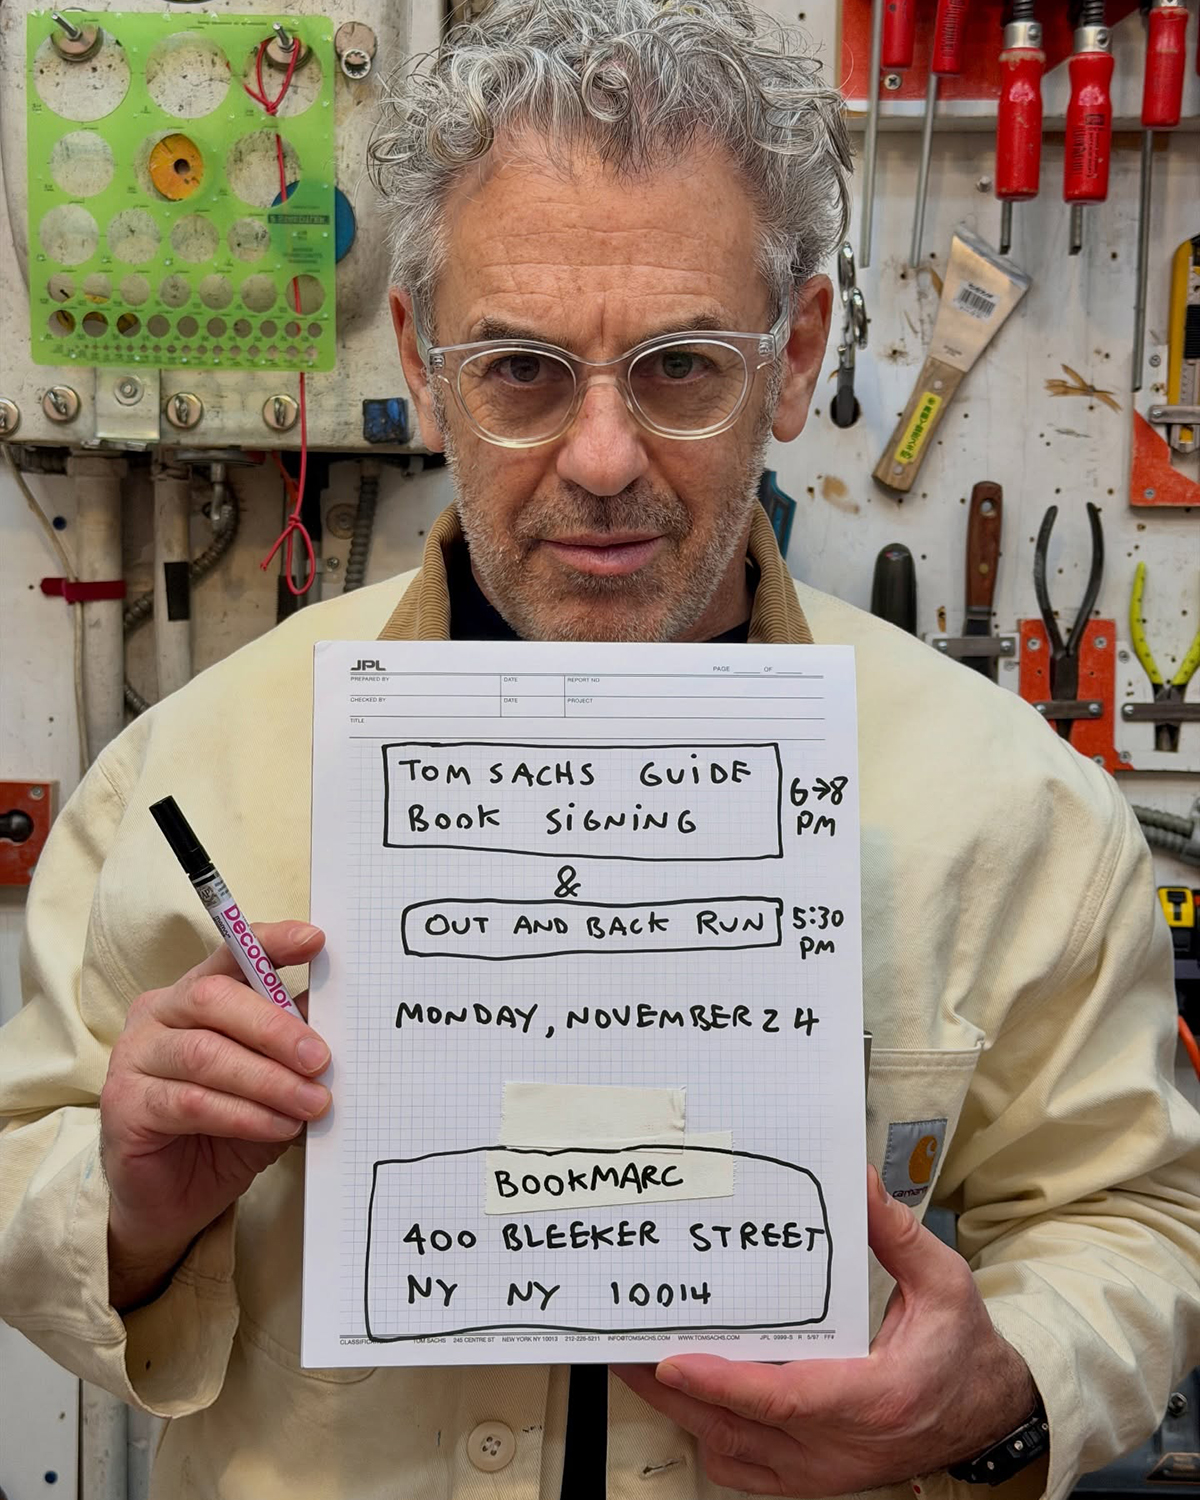 JPL
PAGE ____ OF ____
PREPARED BY DATE REPORT NO
CHECKED BY DATE PROJECT
TITLE
TOM SACHS GUIDE
BOOK SIGNING
6→8
PM
&
OUT AND BACK RUN
5:30
PM
MONDAY, NOVEMBER 24
BOOKMARC
400 BLEEKER STREET
NY NY 10014
TOM SACHS 245 CENTRE ST NEW YORK NY 10013 212-226-5211 INFO@TOMSACHS.COM WWW.TOMSACHS.COM JPL 0999-S R 5/97 FF#
DecoColor
carhartt